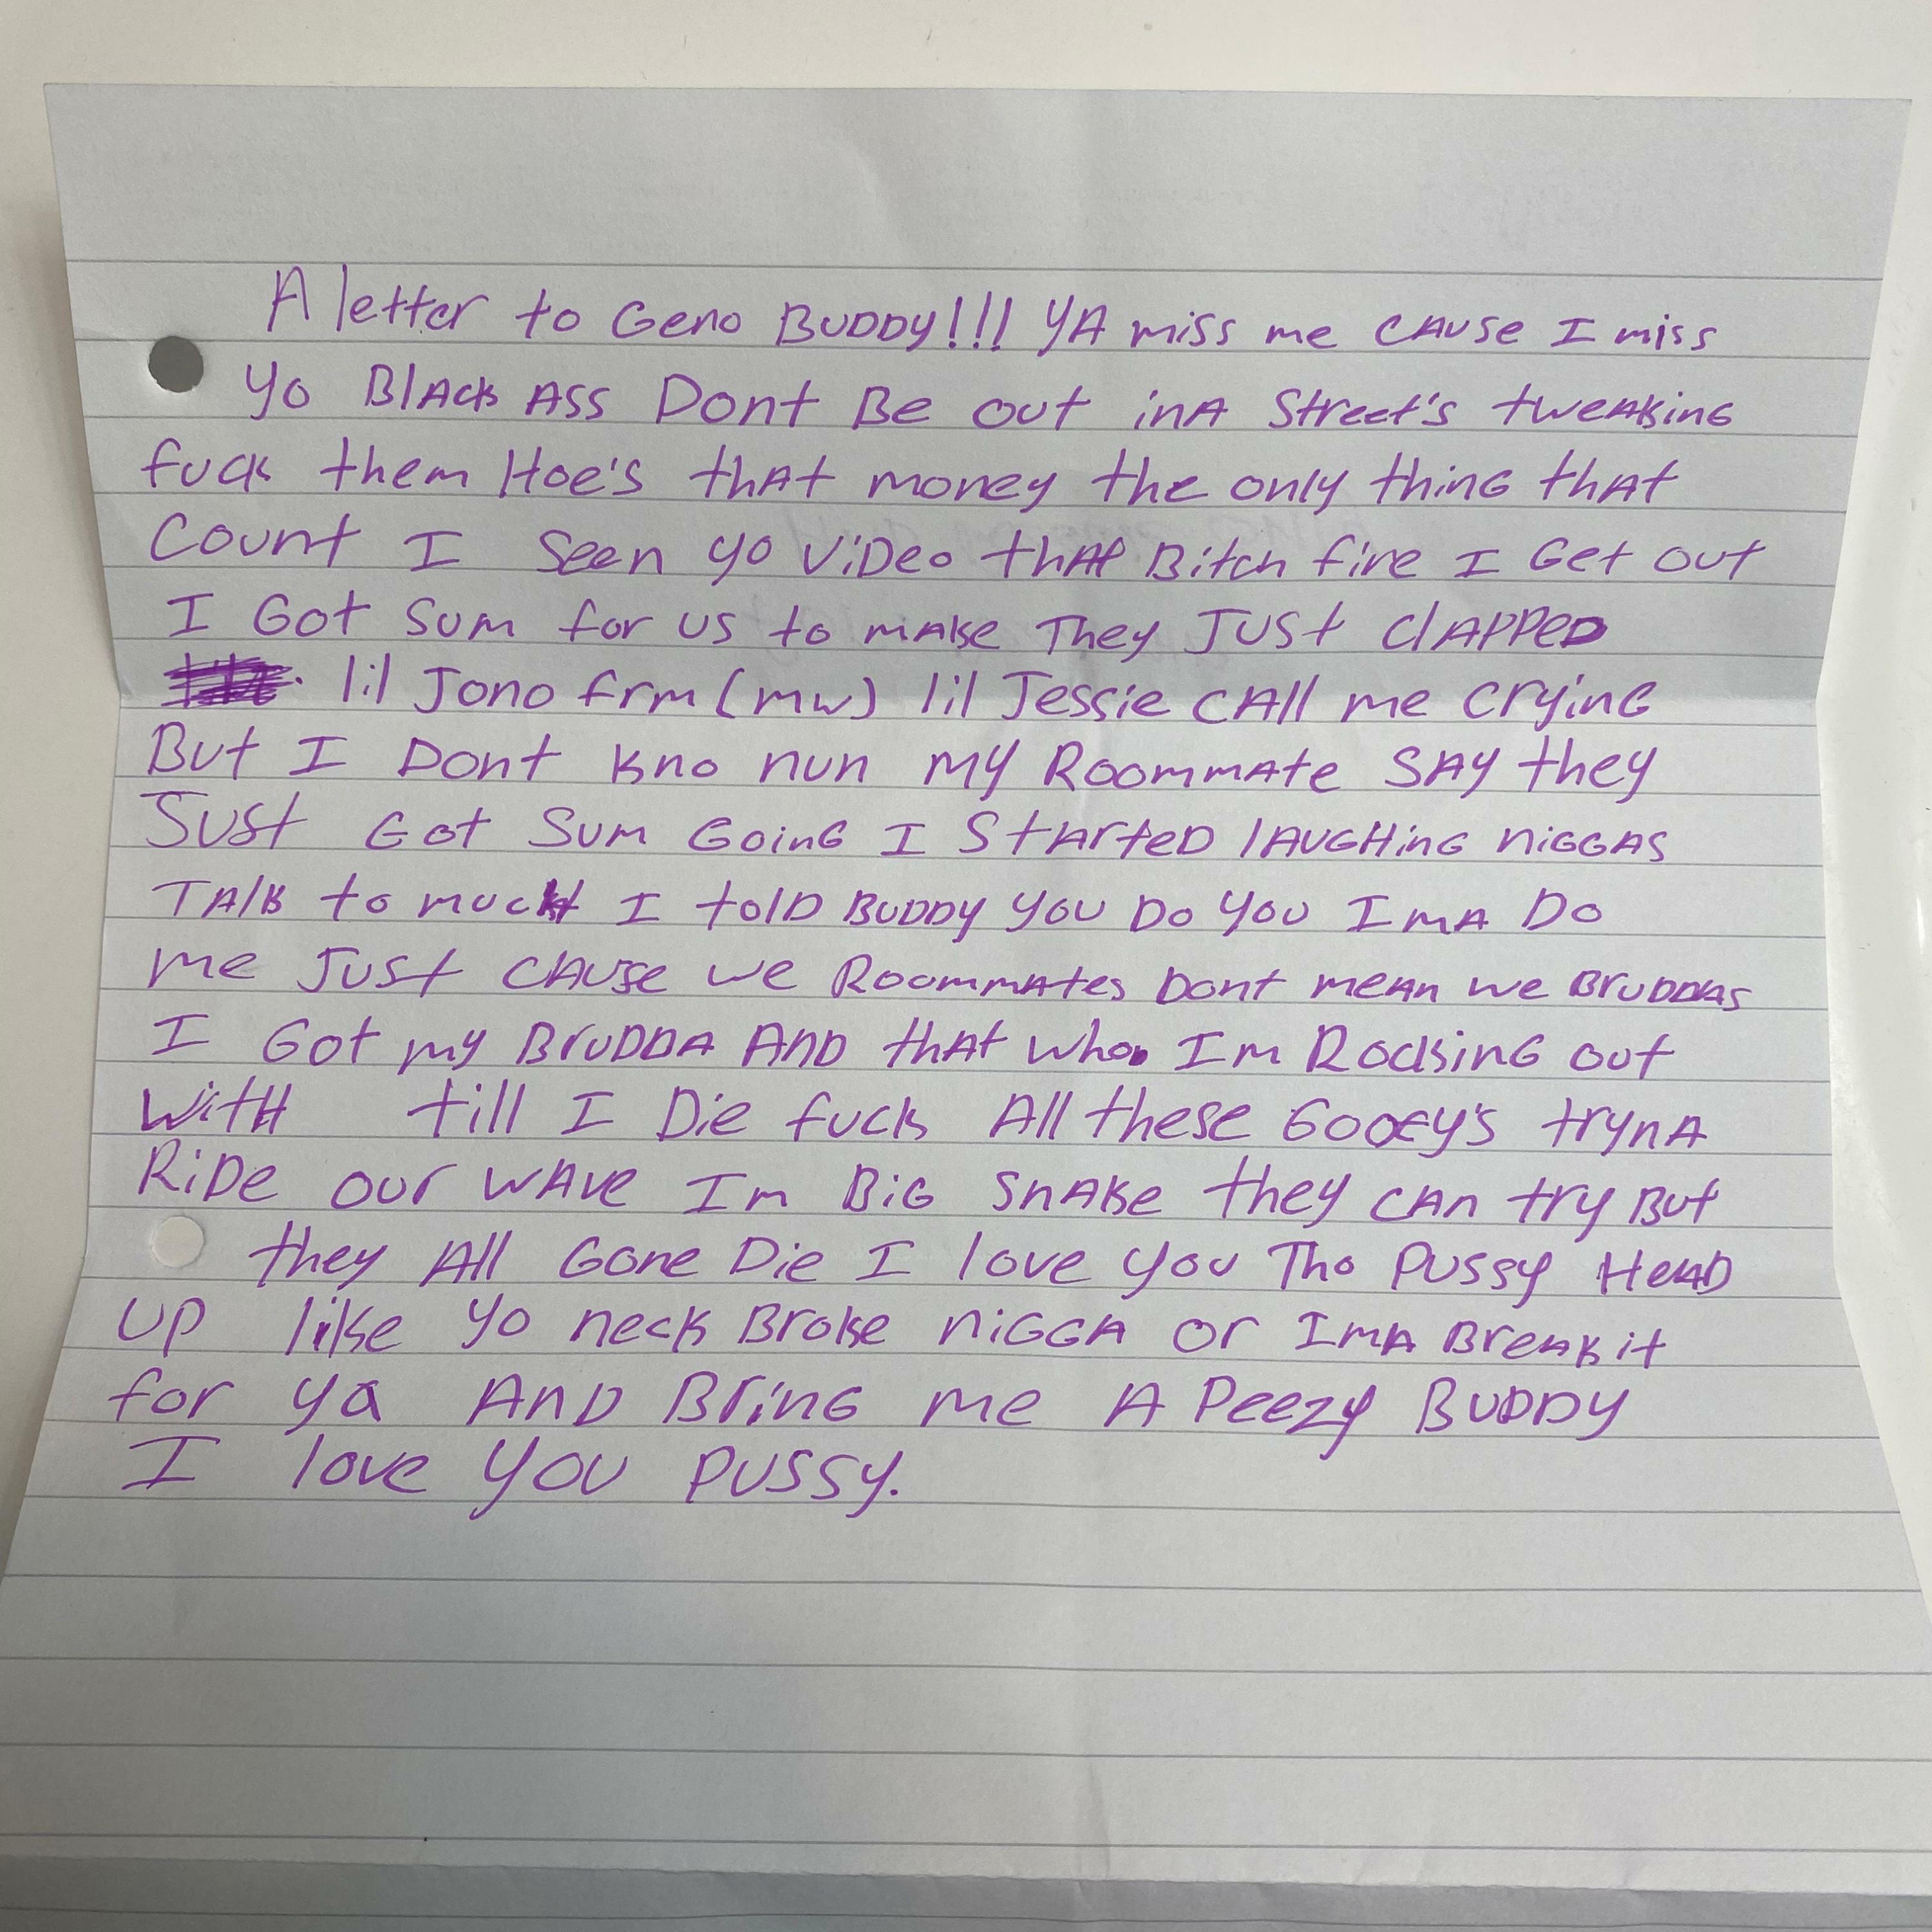 A letter to Geno BUDDY!!! YA miss me CAUSE I miss
yo Black ASS Dont Be out inA Street's tweaking
fuck them Hoe's that money the only thing that
Count I Seen yo ViDeo that Bitch fire I Get out
I Got Sum for us to make They JUSt clAPPeD
lil Jono frm (mw) lil Jessie cAll me crying
But I Dont kno nun my Roommate SAY they
JUSt Got Sum GoinG I StArteD lAUGHinG niGGAS
TAlk to much I tolD BUDDY you Do you I mA Do
me JUSt CAUSe we Roommates Dont meAn we BruDDAS
I Got my BrUDDA AnD thAt who Im Rocking out
WitH till I Die fuck All these Goofy's trynA
RiDe our wAve Im BiG SnAke they cAn try But
they All Gone Die I love you Tho Pussy HeAD
UP like yo neck Broke niGGA or ImA BreAk it
for ya AnD BrinG me A Peezy BUDDY
I love you PUSSY.